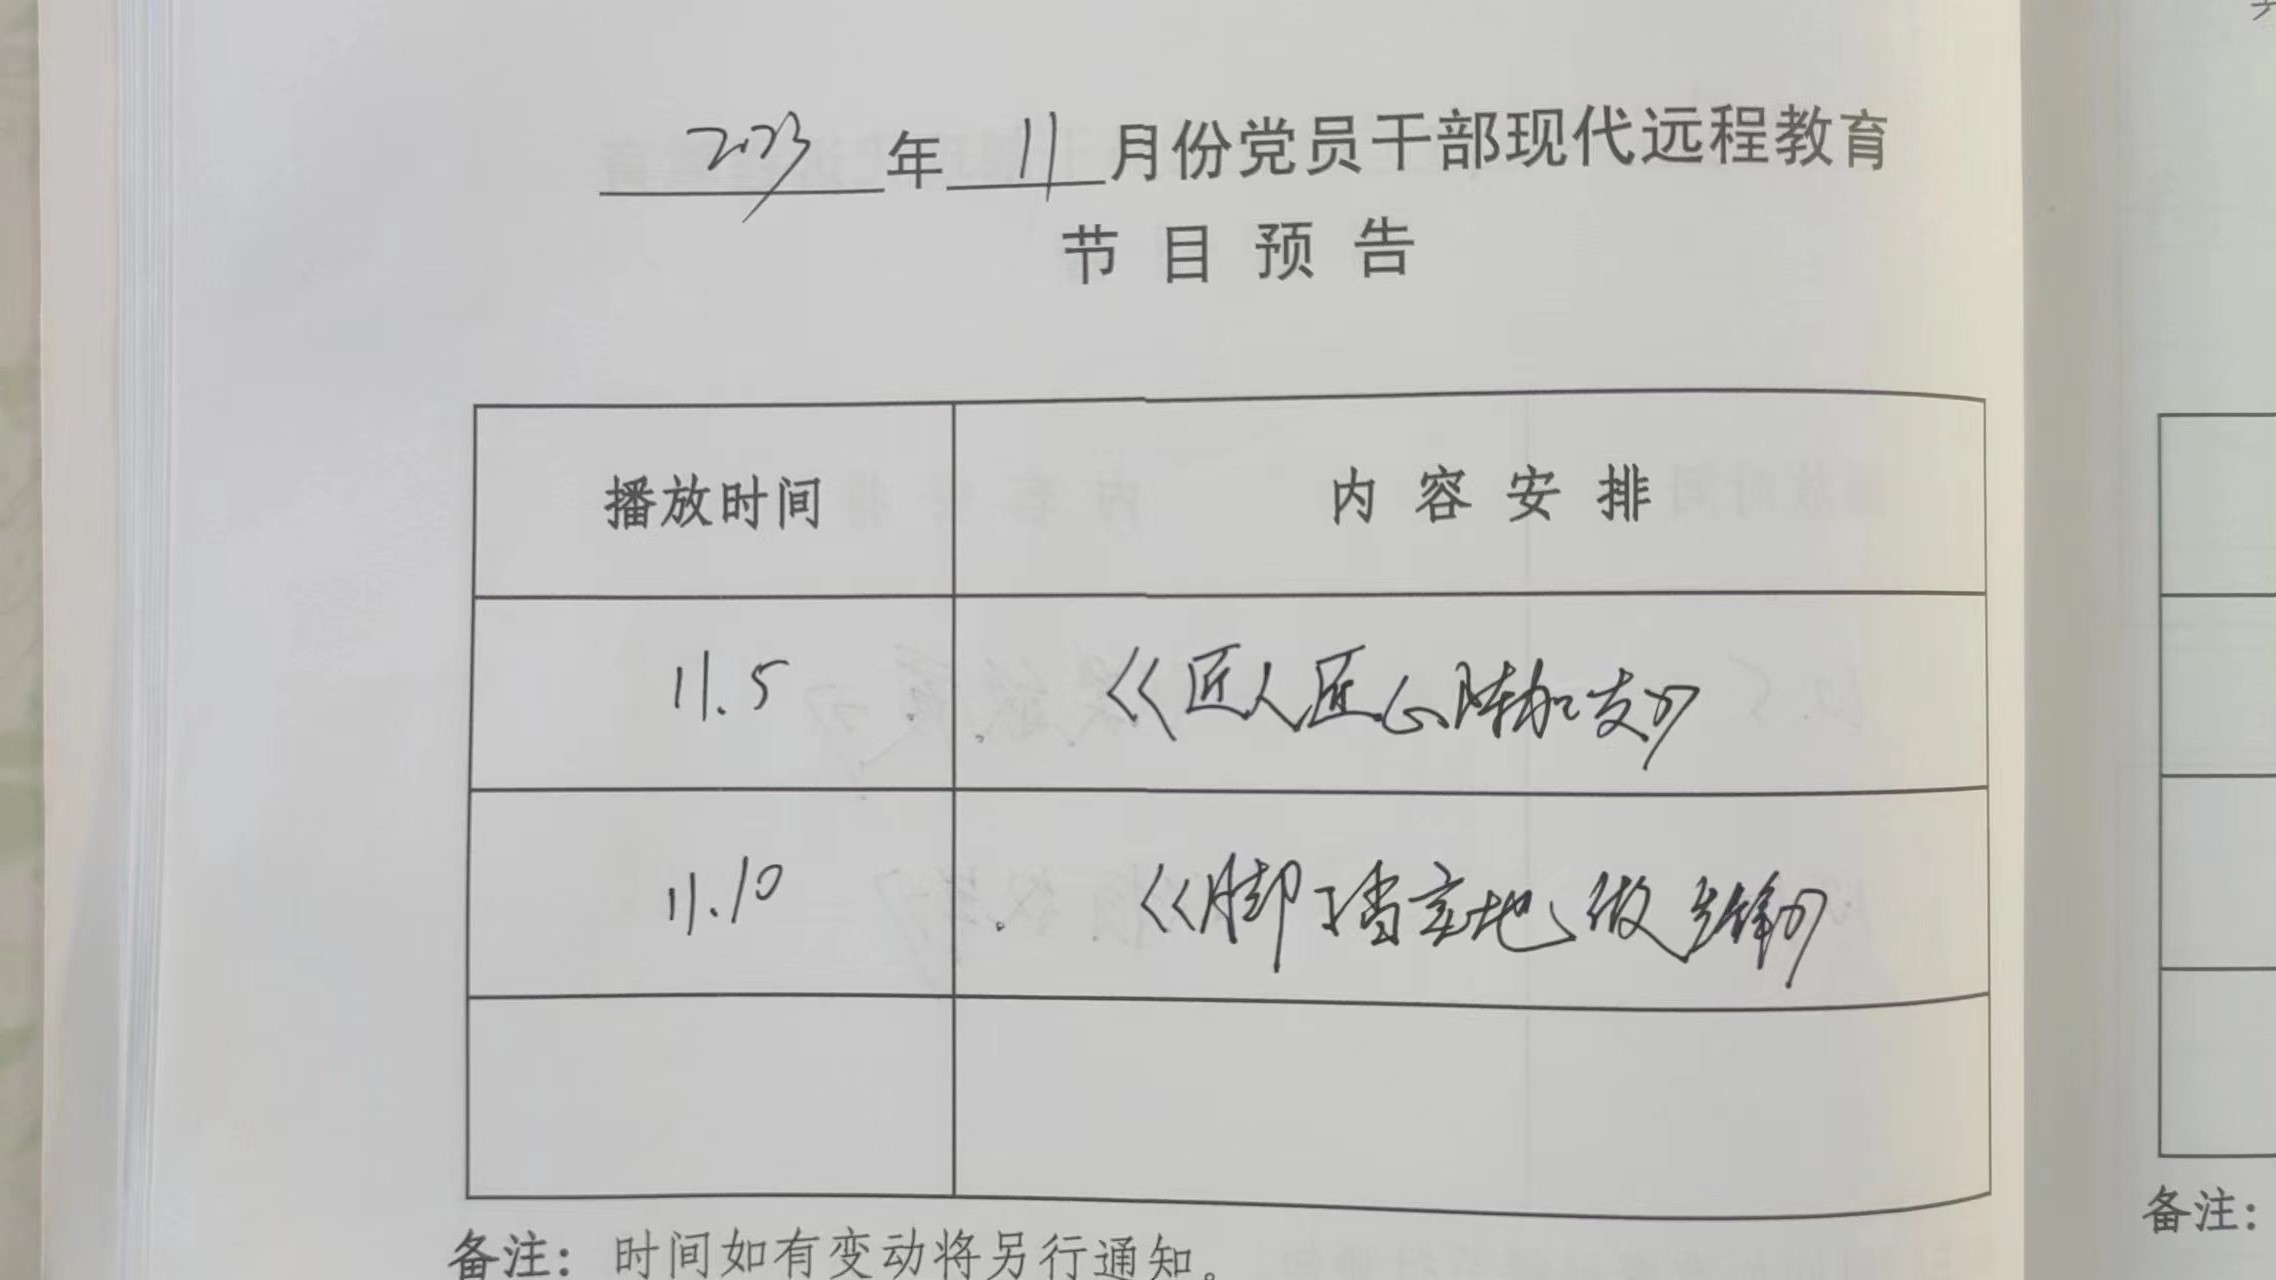 2023年11月份党员干部现代远程教育
节目预告
播放时间 内容安排
11.5 《匠人匠心陈加友》
11.10 《脚踏实地做先锋》
备注：时间如有变动将另行通知。
备注：